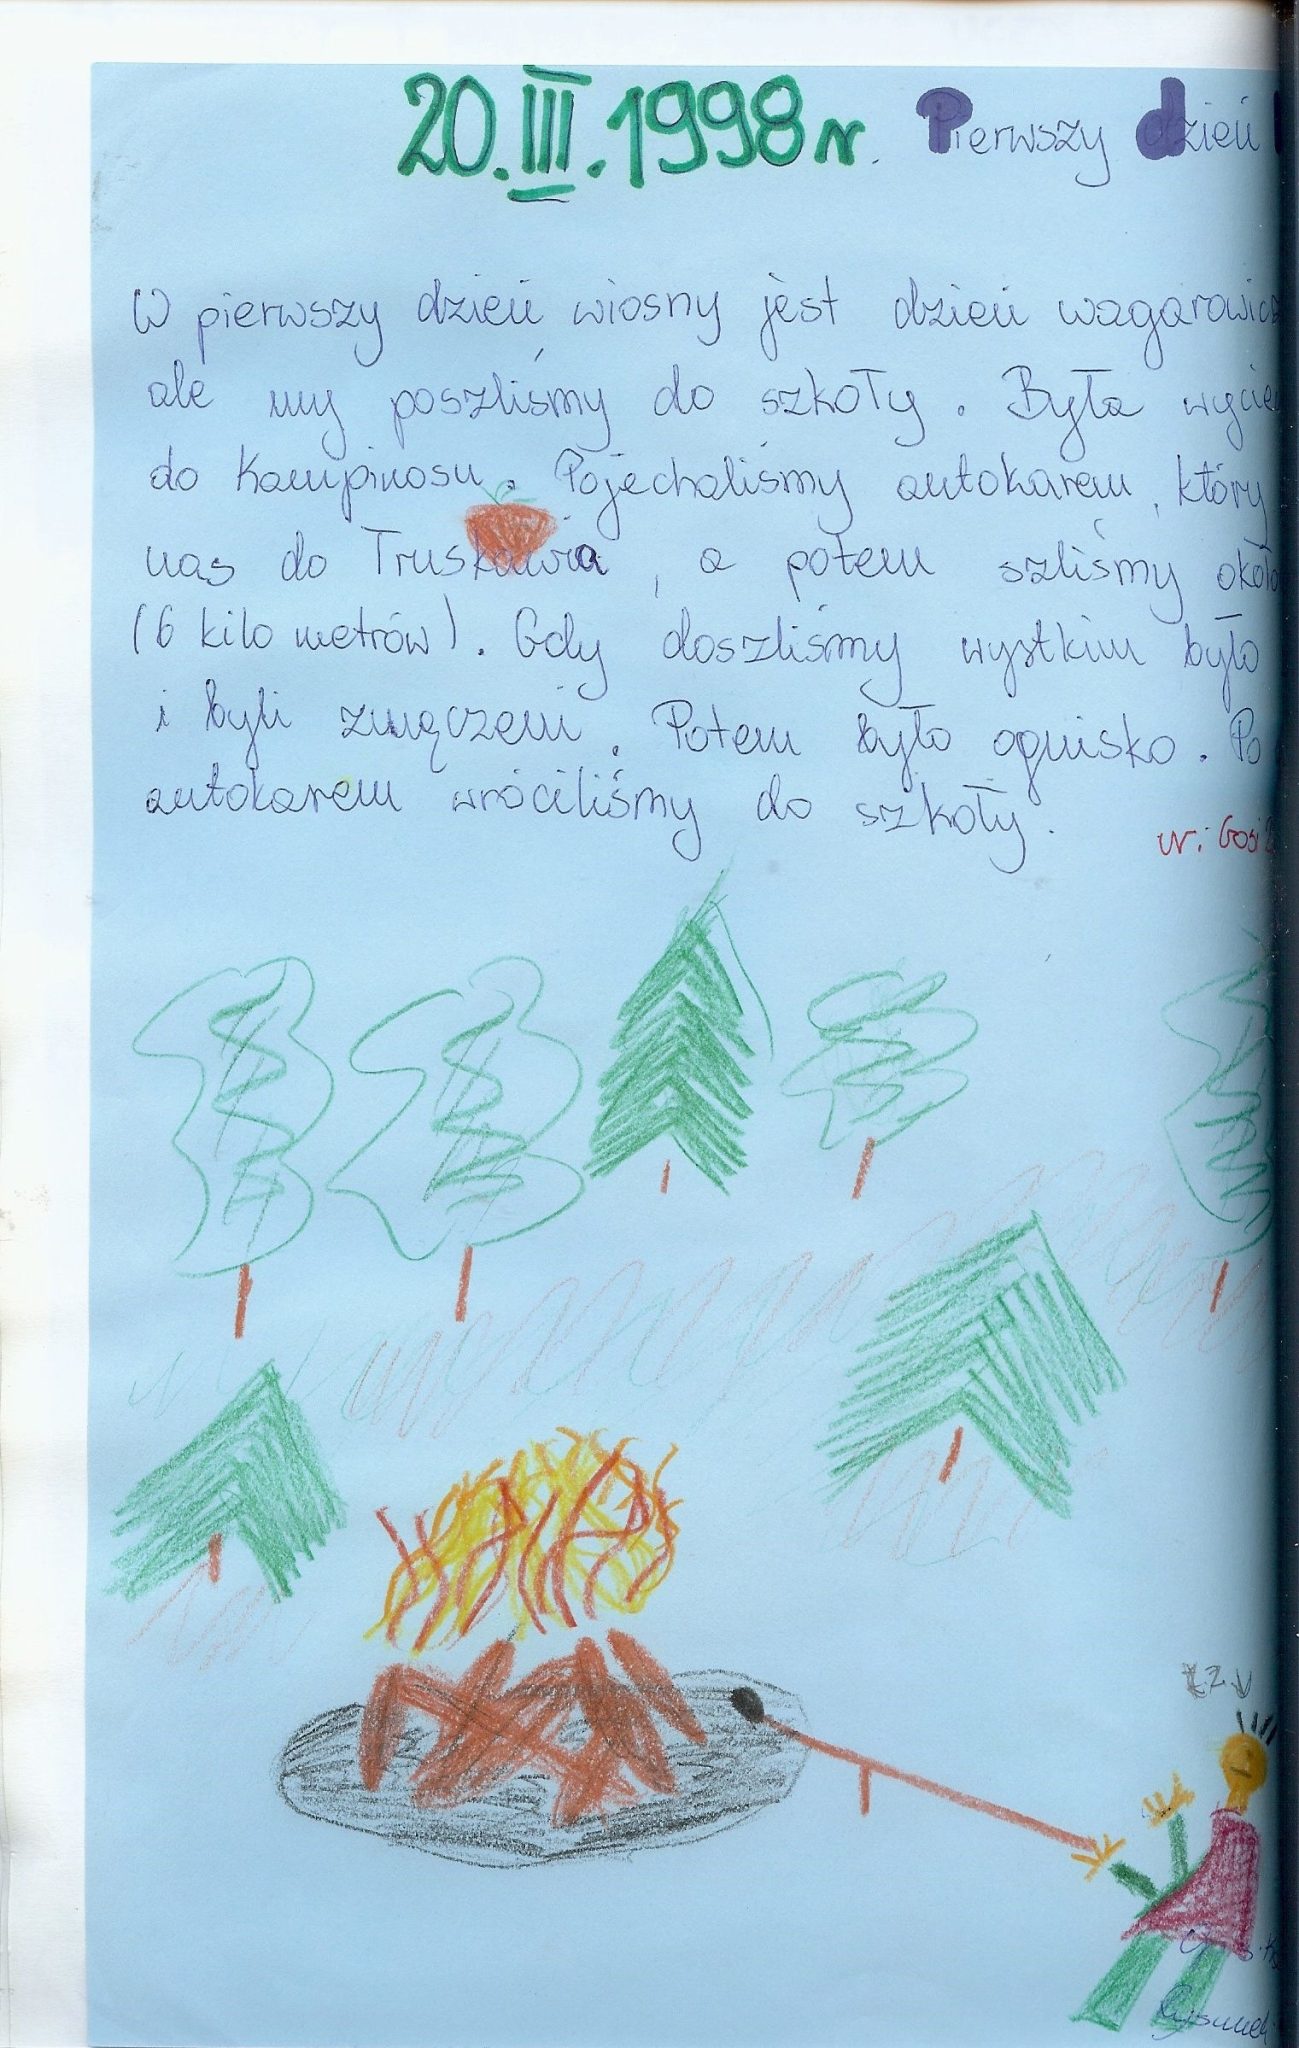 20.III.1998 r. Pierwszy dzień
W pierwszy dzień wiosny jest dzień
ale my poszliśmy do szkoły. Była
do Kampinosu. Pojechaliśmy autokarem, który
nas do Truskawia, a potem szliśmy około
(6 kilo metrów). Gdy doszliśmy wystkim było
i byli zmęczeni. Potem było ognisko. Po
autokarem wróciliśmy do szkoły.